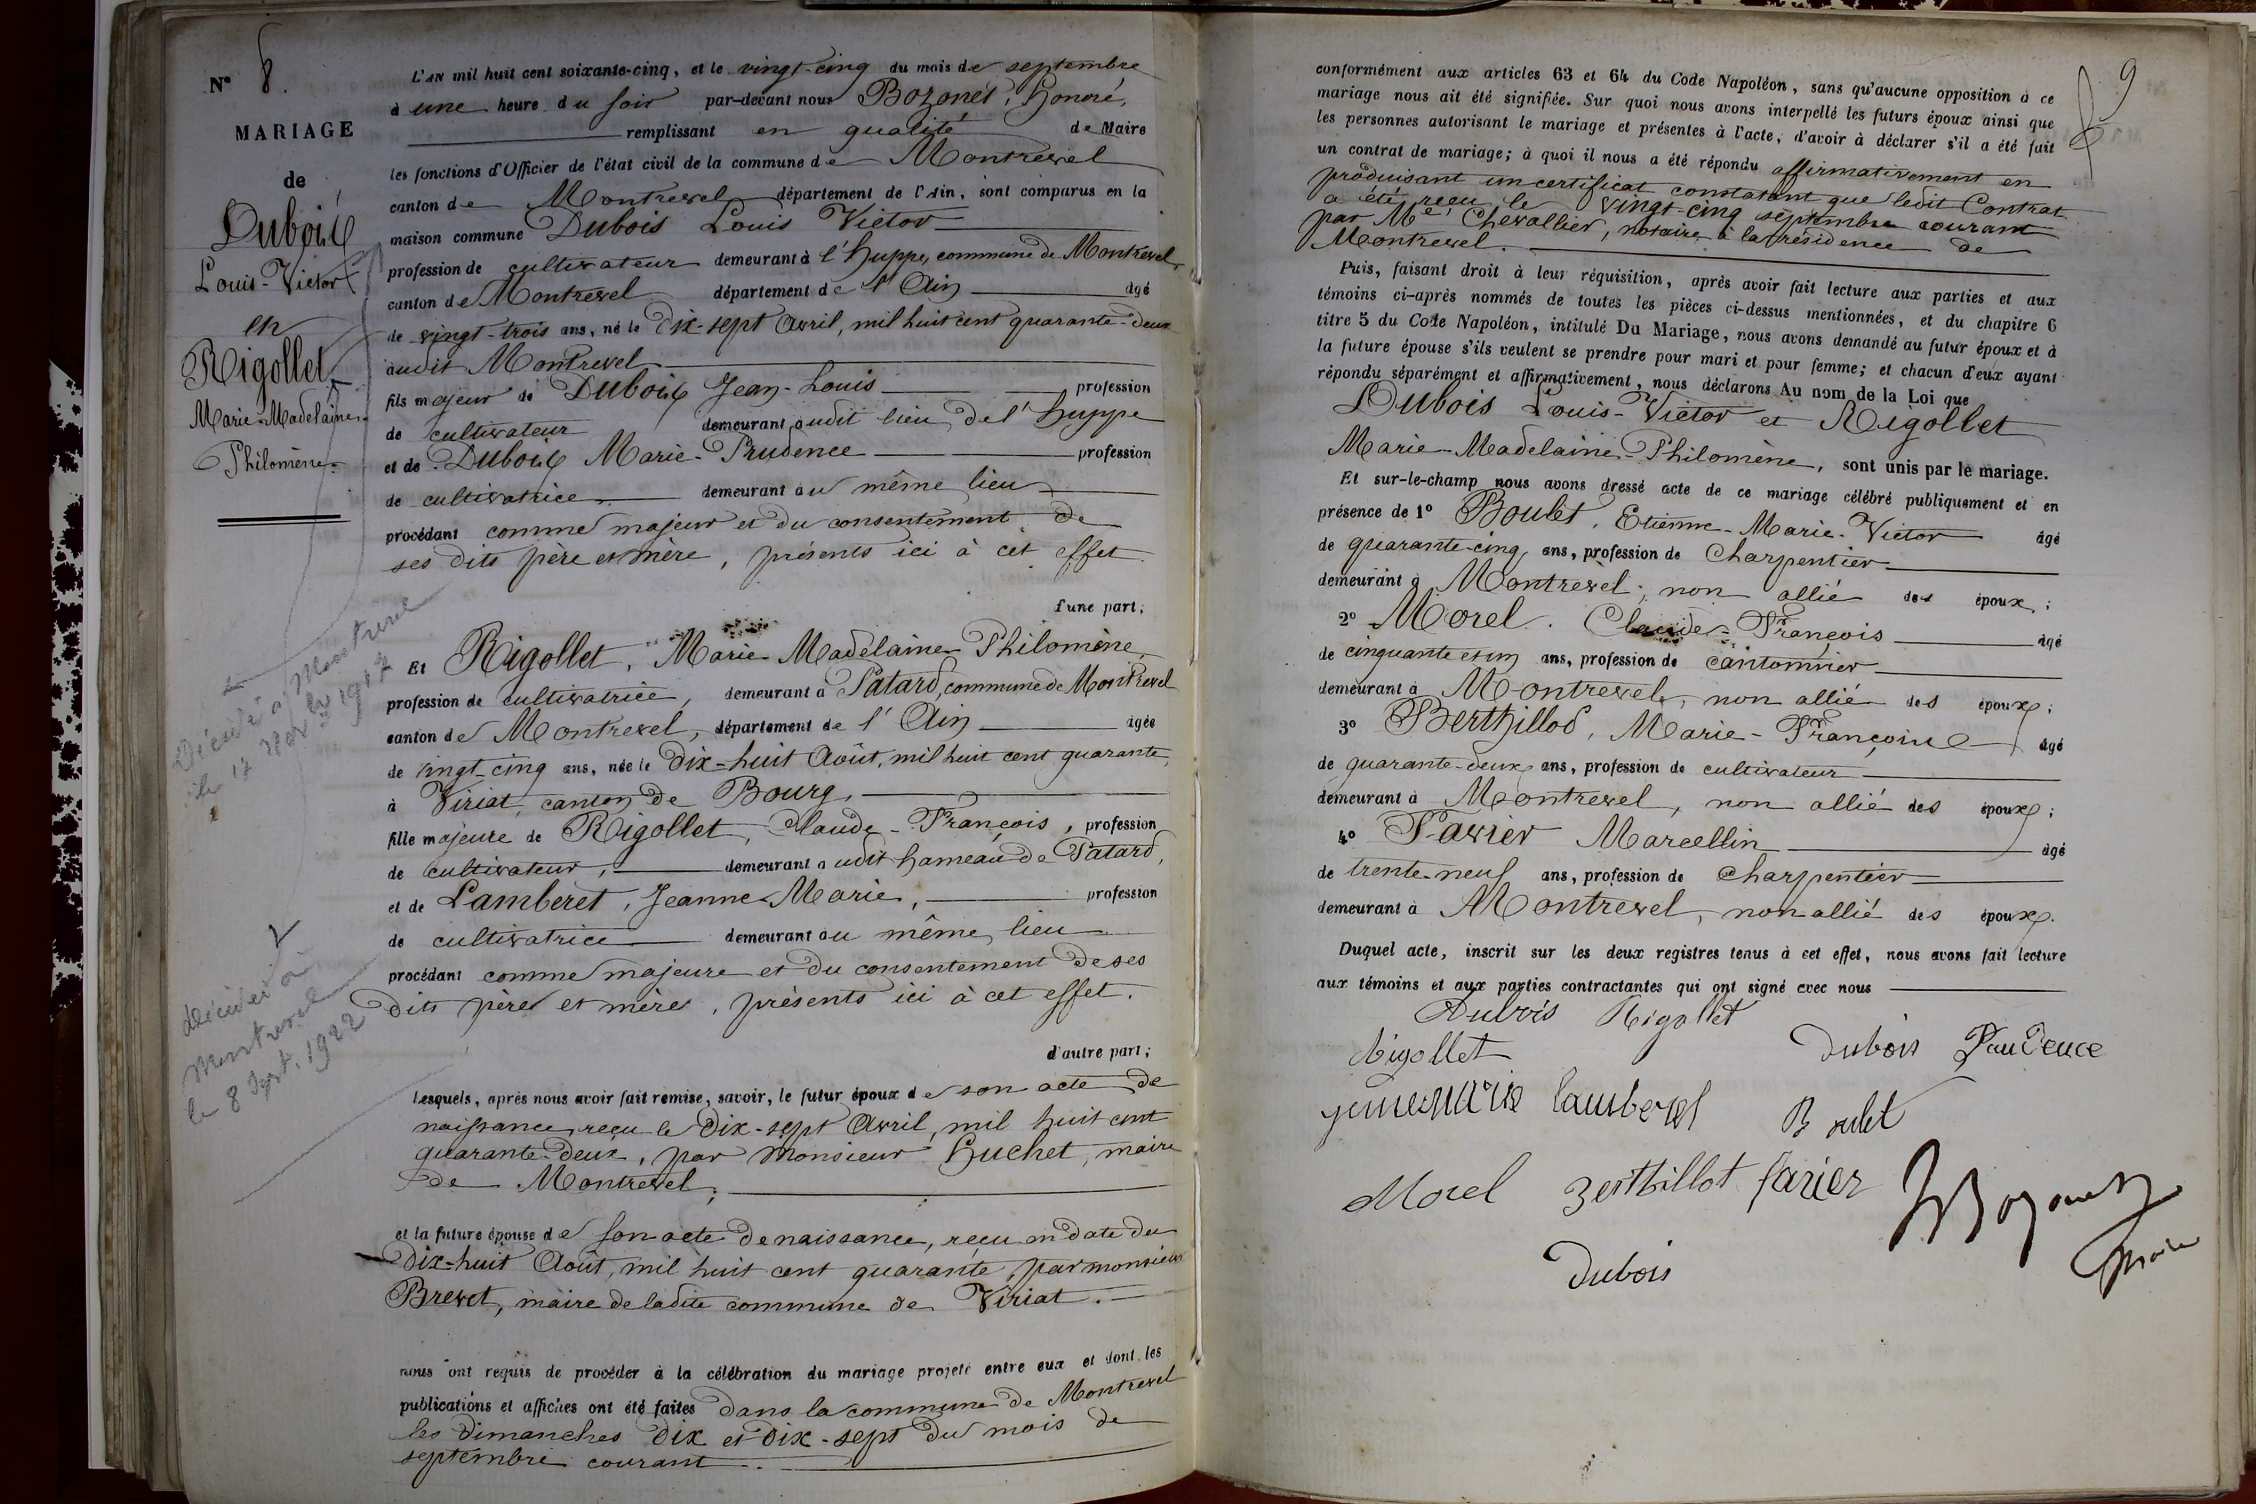 N° 8.
MARIAGE
de
Dubois
Louis-Victor
et
Rigollet
Marie-Madelaine-
Philomène.
Décédé à Montrevel
le 17 1917
décédée à
Montrevel
le 8 Sept. 1922
L'AN mil huit cent soixante-cinq, et le vingt-cinq du mois de septembre
à une heure du soir par-devant nous Bozonet, Honoré,
remplissant en qualité de Maire
les fonctions d'Officier de l'état civil de la commune de Montrevel
canton de Montrevel département de l'Ain, sont comparus en la
maison commune Dubois Louis Victor
profession de cultivateur demeurant à l'huppe, commune de Montrevel,
canton de Montrevel département de l'Ain âgé
de vingt-trois ans, né le dix-sept avril, mil huit cent quarante-deux
audit Montrevel
fils majeur de Dubois Jean-Louis profession
de cultivateur demeurant audit lieu de l'huppe
et de Dubois Marie-Prudence profession
de cultivatrice demeurant au même lieu
procédant comme majeur et du consentement de
ses dits père et mère, présents ici à cet effet
d'une part;
Et Rigollet, Marie-Madelaine-Philomène,
profession de cultivatrice, demeurant à Patard, commune de Montrevel
canton de Montrevel, département de l'Ain âgée
de vingt-cinq ans, née le dix-huit Août, mil huit cent quarante,
à Viriat, canton de Bourg,
fille majeure de Rigollet, Claude-François, profession
de cultivateur, demeurant audit hameau de Patard,
et de Lamberet, Jeanne-Marie, profession
de cultivatrice demeurant au même lieu
procédant comme majeure et du consentement de ses
dits père et mère, présents ici à cet effet.
d'autre part;
Lesquels, après nous avoir fait remise, savoir, le futur époux de son acte de
naissance, reçu le dix-sept avril, mil huit cent
quarante-deux, par Monsieur Huchet, maire
de Montrevel;
et la future épouse de son acte de naissance, reçu en date du
dix-huit Août, mil huit cent quarante, par monsieur
Brevet, maire de ladite commune de Viriat.
nous ont requis de procéder à la célébration du mariage projeté entre eux et dont les
publications et affiches ont été faites dans la commune de Montrevel
les dimanches dix et dix-sept du mois de
septembre courant.
9
conformément aux articles 63 et 64 du Code Napoléon, sans qu'aucune opposition à ce
mariage nous ait été signifiée. Sur quoi nous avons interpellé les futurs époux ainsi que
les personnes autorisant le mariage et présentes à l'acte, d'avoir à déclarer s'il a été fait
un contrat de mariage; à quoi il nous a été répondu affirmativement en
produisant un certificat constatant que ledit Contrat
a été reçu le vingt-cinq septembre courant
par Me Chevallier, notaire à la résidence de
Montrevel.
Puis, faisant droit à leur réquisition, après avoir fait lecture aux parties et aux
témoins ci-après nommés de toutes les pièces ci-dessus mentionnées, et du chapitre 6
titre 5 du Code Napoléon, intitulé Du Mariage, nous avons demandé au futur époux et à
la future épouse s'ils veulent se prendre pour mari et pour femme; et chacun d'eux ayant
répondu séparément et affirmativement, nous déclarons Au nom de la Loi que
Dubois Louis-Victor et Rigollet
Marie-Madelaine-Philomène, sont unis par le mariage.
Et sur-le-champ nous avons dressé acte de ce mariage célébré publiquement et en
présence de 1° Boulet, Etienne-Marie-Victor âgé
de quarante-cinq ans, profession de Charpentier
demeurant à Montrevel; non allié des époux;
2° Morel. Claude-François âgé
de cinquante et un ans, profession de cantonnier
demeurant à Montrevel, non allié des époux;
3° Berthillod, Marie-François âgé
de quarante-deux ans, profession de cultivateur
demeurant à Montrevel, non allié des époux;
4° Favier Marcellin âgé
de trente-neuf ans, profession de charpentier
demeurant à Montrevel, non allié des époux.
Duquel acte, inscrit sur les deux registres tenus à cet effet, nous avons fait lecture
aux témoins et aux parties contractantes qui ont signé avec nous
Dubois Rigollet
Rigollet Dubois Prudence
jenne marie lamberet Boulet
Morel Berthillot favier Bozonet
maire
Dubois